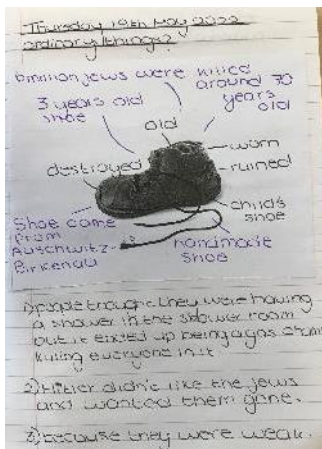 Thursday 19th May 2022
ordinary things?
6 million jews were killed
around 70
years
old
3 years old
shoe
old
worn
destroyed
ruined
child's
shoe
Shoe came
from
Auschwitz-
Birkenau
handmade
shoe
1) people thought they were having
a shower in the shower room
but it ended up being a gas
killing everyone in it.
2) Hitler didn't like the jews
and wanted them gone.
3) because they were weak.